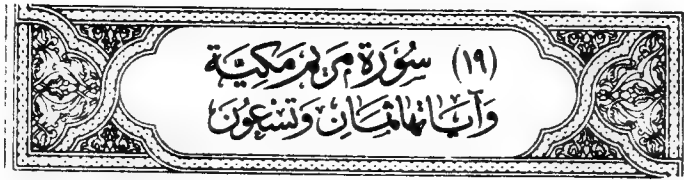 (١٩) سُورَة مَريَم مَكيَّة
وَآيَاتهَا ثمَان وَتسْعُونَ